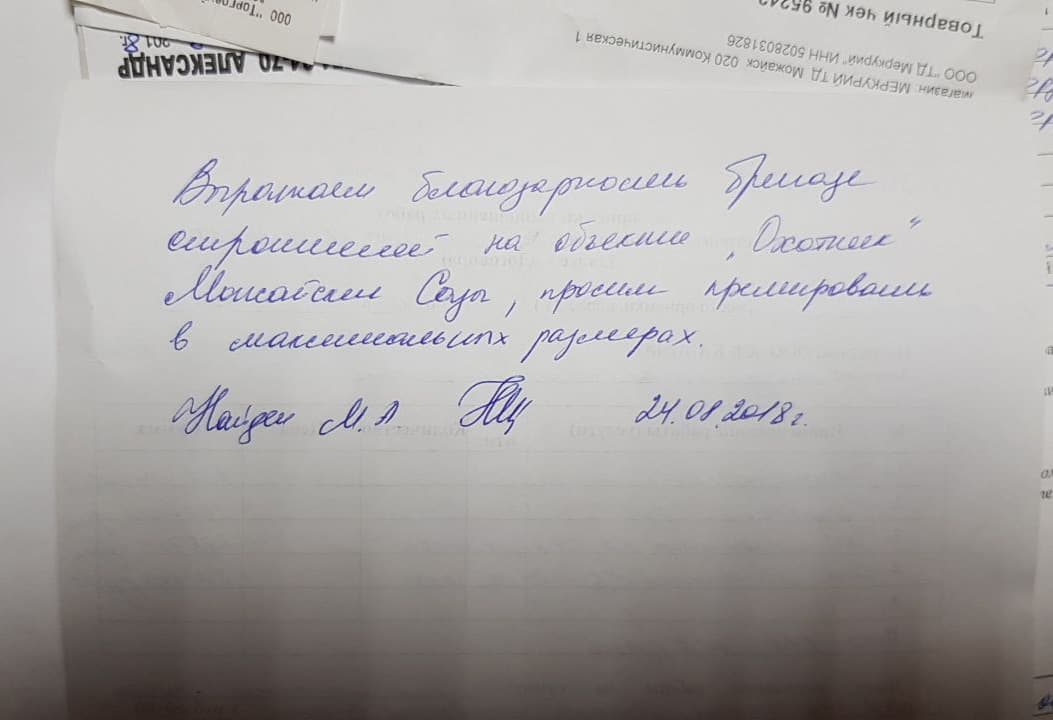 ООО "Торгов
201 8г.
70 АЛЕКСАНДР
Товарный чек № 9524
ООО "ТД Меркурий" ИНН 5028031826
магазин МЕРКУРИЙ ТД Можайск 020 Коммунистическая 1
Выражаем благодарность бригаде
строителей на объекте „Охотник"
Можайские Сады, просим премировать
в максимальных размерах.
Найден М.А. 24.08.2018 г.